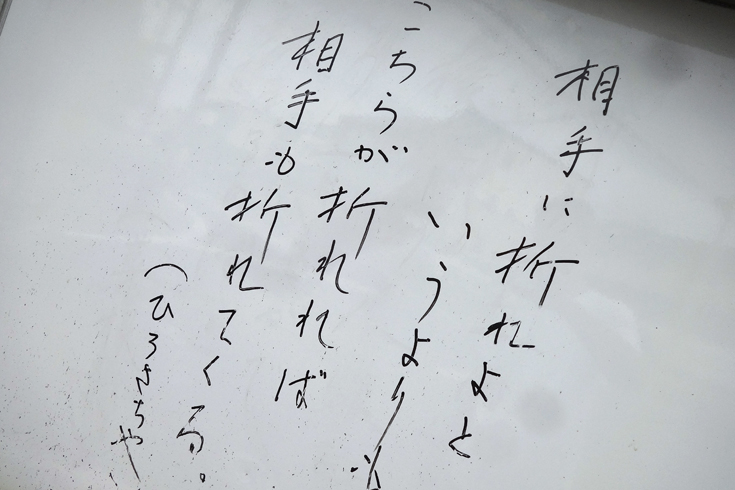 相手に折れよと
いうよりも
こちらが折れれば
相手も折れてくる。
（ひろさちや